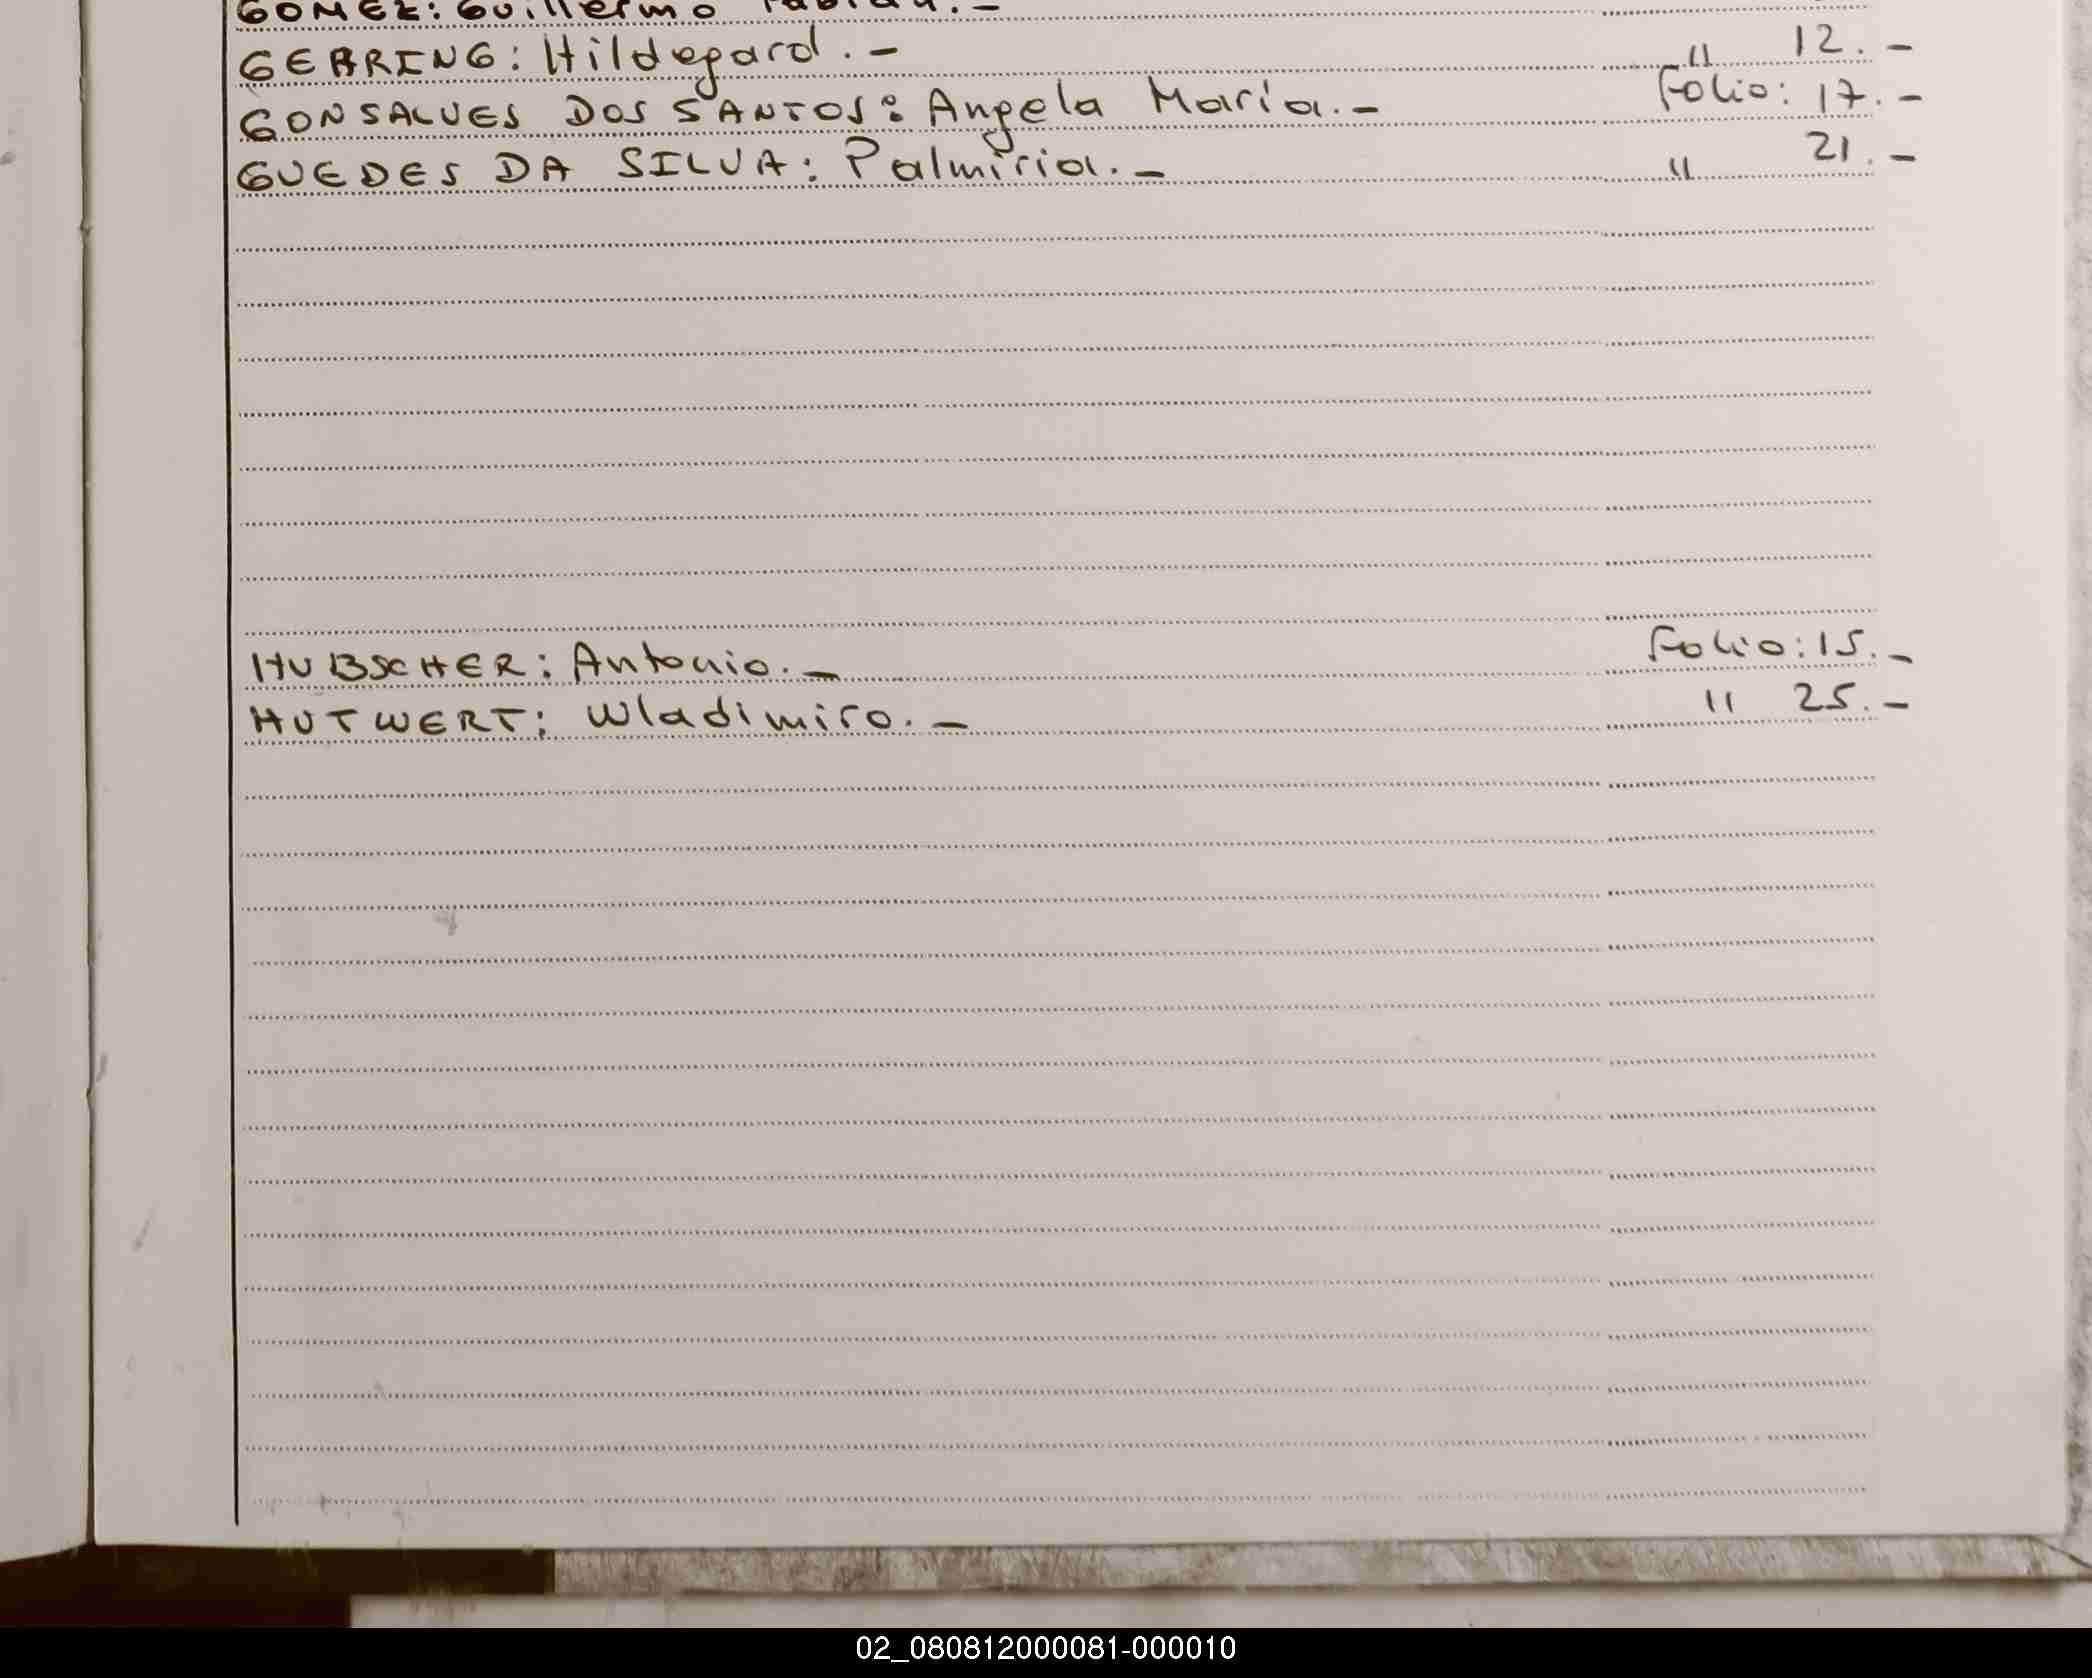 GOMEZ: Guillermo Fabian.-
GEHRING: Hildegard.- " 12.-
GONSALVES DOS SANTOS: Angela Maria.- Folio: 17.-
GUEDES DA SILVA: Palmiria.- " 21.-
HUBSCHER: Antonio.- Folio: 15.-
HUTWERT: Wladimiro.- " 25.-
02_080812000081-000010